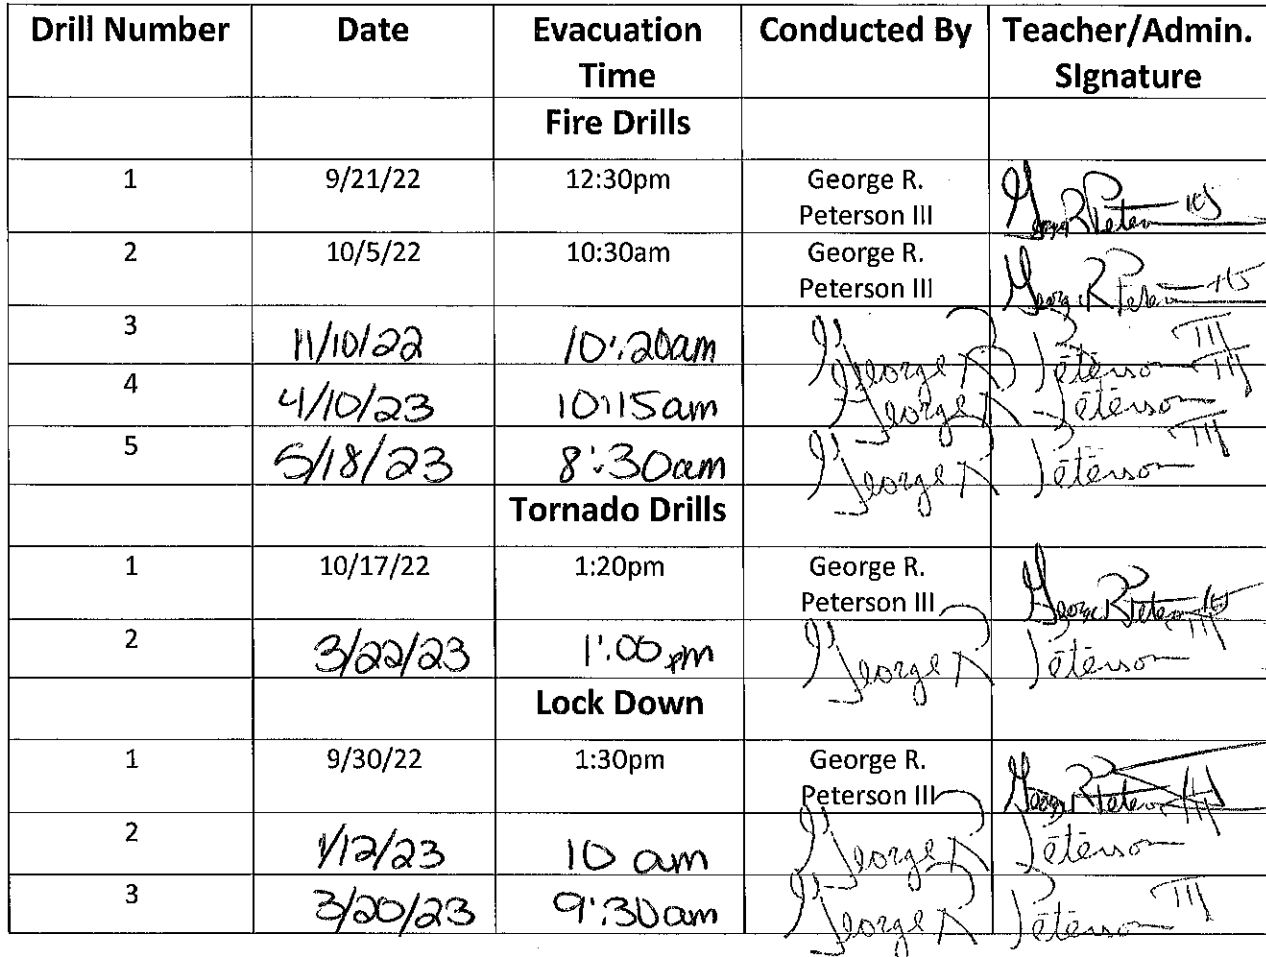 Drill Number Date Evacuation Time Conducted By Teacher/Admin. SIgnature
Fire Drills
1 9/21/22 12:30pm George R. Peterson III George R Peterson
2 10/5/22 10:30am George R. Peterson III George R Peterson
3 11/10/22 10:20am George R Peterson III
4 4/10/23 10:15am George R Peterson III
5 5/18/23 8:30am George R Peterson III
Tornado Drills
1 10/17/22 1:20pm George R. Peterson III George R Peterson
2 3/22/23 1:05pm George R Peterson III
Lock Down
1 9/30/22 1:30pm George R. Peterson III George R Peterson
2 1/12/23 10 am George R Peterson III
3 3/20/23 9:30am George R Peterson III